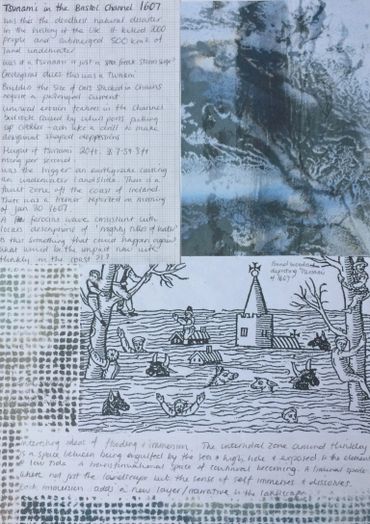 Tsunami's in the Bristol Channel 1607
Was this the deadliest natural disaster
in the history of the UK It killed 2000
people and submerged 500 km² of
land underwater
Was it a Tsunami or just a freak storm surge?
Geological clues this was a Tsunami
Boulders the size of cars stacked in chains
require a prolonged current
Unusual erosion features in the channel
bedrock caused by whirlpools picking
up cobbles - each like a drill to make
shaped depressions
Height of Tsunami 20ft
rising per second
Was the trigger an earthquake causing
an underwater landslide. There is a
fault zone off the coast of Ireland.
There was a tremor reported on morning
of Jan 30 1607
A ferocious wave consistent with
locals descriptions of 'mighty hilles of water'
Is this something that could happen again
what would be the impact now with
Hinkley on the coast?!?
woodcut
depicting Tsunami
of 1607
Interesting idea of flooding & immersion. The intertidal zone around Hinkley
is a space between being engulfed by the sea @ high tide & exposed to the elements
@ low tide. A space of continual becoming. A liminal space
where not just the landscape but the sense of self immerses & discovers.
Each immersion adds a new layer/narrative in the landscape.